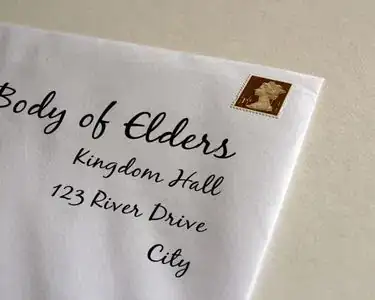 Body of Elders
Kingdom Hall
123 River Drive
City